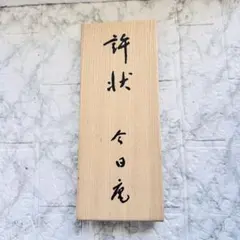 許状
今日庵